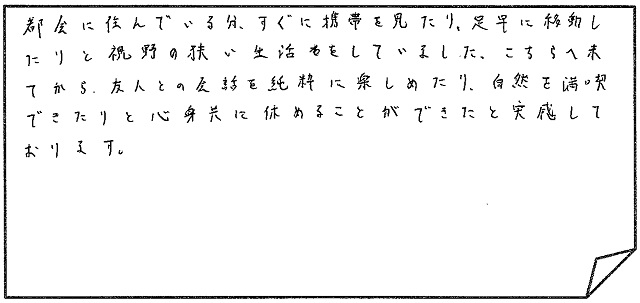 都会に住んでいる分、すぐに携帯を見たり、足早に移動し
たりと視野の狭い生活をしていました。こちらへ来
てから、友人との会話を純粋に楽しめたり、自然を満喫
できたりと心身共に休めることができたと実感して
おります。